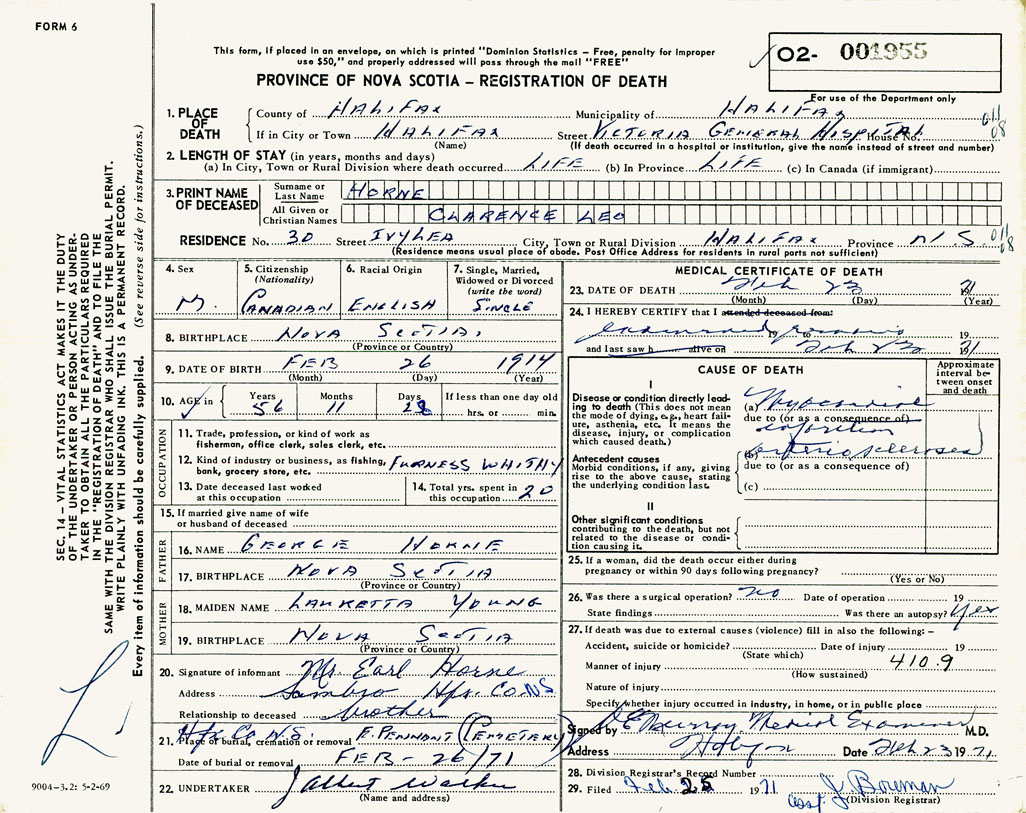 FORM 6
This form, if placed in an envelope, on which is printed "Dominion Statistics – Free, penalty for improper
use $50," and properly addressed will pass through the mail "FREE"
PROVINCE OF NOVA SCOTIA – REGISTRATION OF DEATH
02- 001955
For use of the Department only
1. PLACE OF DEATH
County of HALIFAX Municipality of HALIFAX
If in City or Town HALIFAX Street VICTORIA GENERAL HOSPITAL House No.
(Name) (If death occurred in a hospital or institution, give the name instead of street and number)
011
08
2. LENGTH OF STAY (in years, months and days)
(a) In City, Town or Rural Division where death occurred LIFE (b) In Province LIFE (c) In Canada (if immigrant)
3. PRINT NAME OF DECEASED
Surname or Last Name HORNE
All Given or Christian Names CLARENCE LEO
RESIDENCE No. 30 Street IVYLEA City, Town or Rural Division HALIFAX Province N.S. 011
08
(Residence means usual place of abode. Post Office Address for residents in rural parts not sufficient)
4. Sex M.
5. Citizenship (Nationality) CANADIAN
6. Racial Origin ENGLISH
7. Single, Married, Widowed or Divorced (write the word) SINGLE
8. BIRTHPLACE NOVA SCOTIA
(Province or Country)
9. DATE OF BIRTH FEB 26 1914
(Month) (Day) (Year)
10. AGE in Years 56 Months 11 Days 28 If less than one day old hrs. or min.
OCCUPATION
11. Trade, profession, or kind of work as
fisherman, office clerk, sales clerk, etc.
12. Kind of industry or business, as fishing, FURNESS WHITHY
bank, grocery store, etc.
13. Date deceased last worked
at this occupation
14. Total yrs. spent in
this occupation 20
15. If married give name of wife
or husband of deceased
FATHER
16. NAME GEORGE HORNE
17. BIRTHPLACE NOVA SCOTIA
(Province or Country)
MOTHER
18. MAIDEN NAME LAURETTA YOUNG
19. BIRTHPLACE NOVA SCOTIA
(Province or Country)
20. Signature of informant Mr. Earl Horne
Address Sambro Hfx. Co. N.S.
Relationship to deceased brother
Hfx. Co. N.S.
21. Place of burial, cremation or removal E. PENNANT (CEMETERY)
Date of burial or removal FEB - 26/71
22. UNDERTAKER J Albert Walker
(Name and address)
MEDICAL CERTIFICATE OF DEATH
23. DATE OF DEATH Feb 23 71
(Month) (Day) (Year)
24. I HEREBY CERTIFY that I attended deceased from:
examined 19 to remains 19
and last saw h alive on Feb 23 1971
CAUSE OF DEATH
Approximate interval between onset and death
I
Disease or condition directly leading to death (This does not
mean the mode of dying, e.g., heart failure, asthenia, etc. It means the
disease, injury, or complication
which caused death.)
(a) Myocardial
due to (or as a consequence of)
infarction
Antecedent causes
Morbid conditions, if any, giving
rise to the above cause, stating
the underlying condition last.
(b) arteriosclerosis
due to (or as a consequence of)
(c)
II
Other significant conditions
contributing to the death, but not
related to the disease or condition causing it.
25. If a woman, did the death occur either during
pregnancy or within 90 days following pregnancy?
(Yes or No)
26. Was there a surgical operation? no Date of operation 19
State findings Was there an autopsy? Yes
27. If death was due to external causes (violence) fill in also the following: –
Accident, suicide or homicide? Date of injury 19
(State which)
Manner of injury 410.9
(How sustained)
Nature of injury
Specify whether injury occurred in industry, in home, or in public place
Signed by Murray Medical Examiner M.D.
Address Date Feb 23 1971
28. Division Registrar's Record Number
29. Filed Feb 25 1971 J Boreman
(Division Registrar)
SEC. 14 – VITAL STATISTICS ACT MAKES IT THE DUTY
OF THE UNDERTAKER OR PERSON ACTING AS UNDERTAKER
TO OBTAIN ALL THE PARTICULARS REQUIRED
IN THE "REGISTRATION OF DEATH" AND TO FILE THE
SAME WITH THE DIVISION REGISTRAR WHO SHALL ISSUE THE BURIAL PERMIT.
WRITE PLAINLY WITH UNFADING INK. THIS IS A PERMANENT RECORD.
Every item of information should be carefully supplied. (See reverse side for instructions.)
9004–3.2: 5-2-69